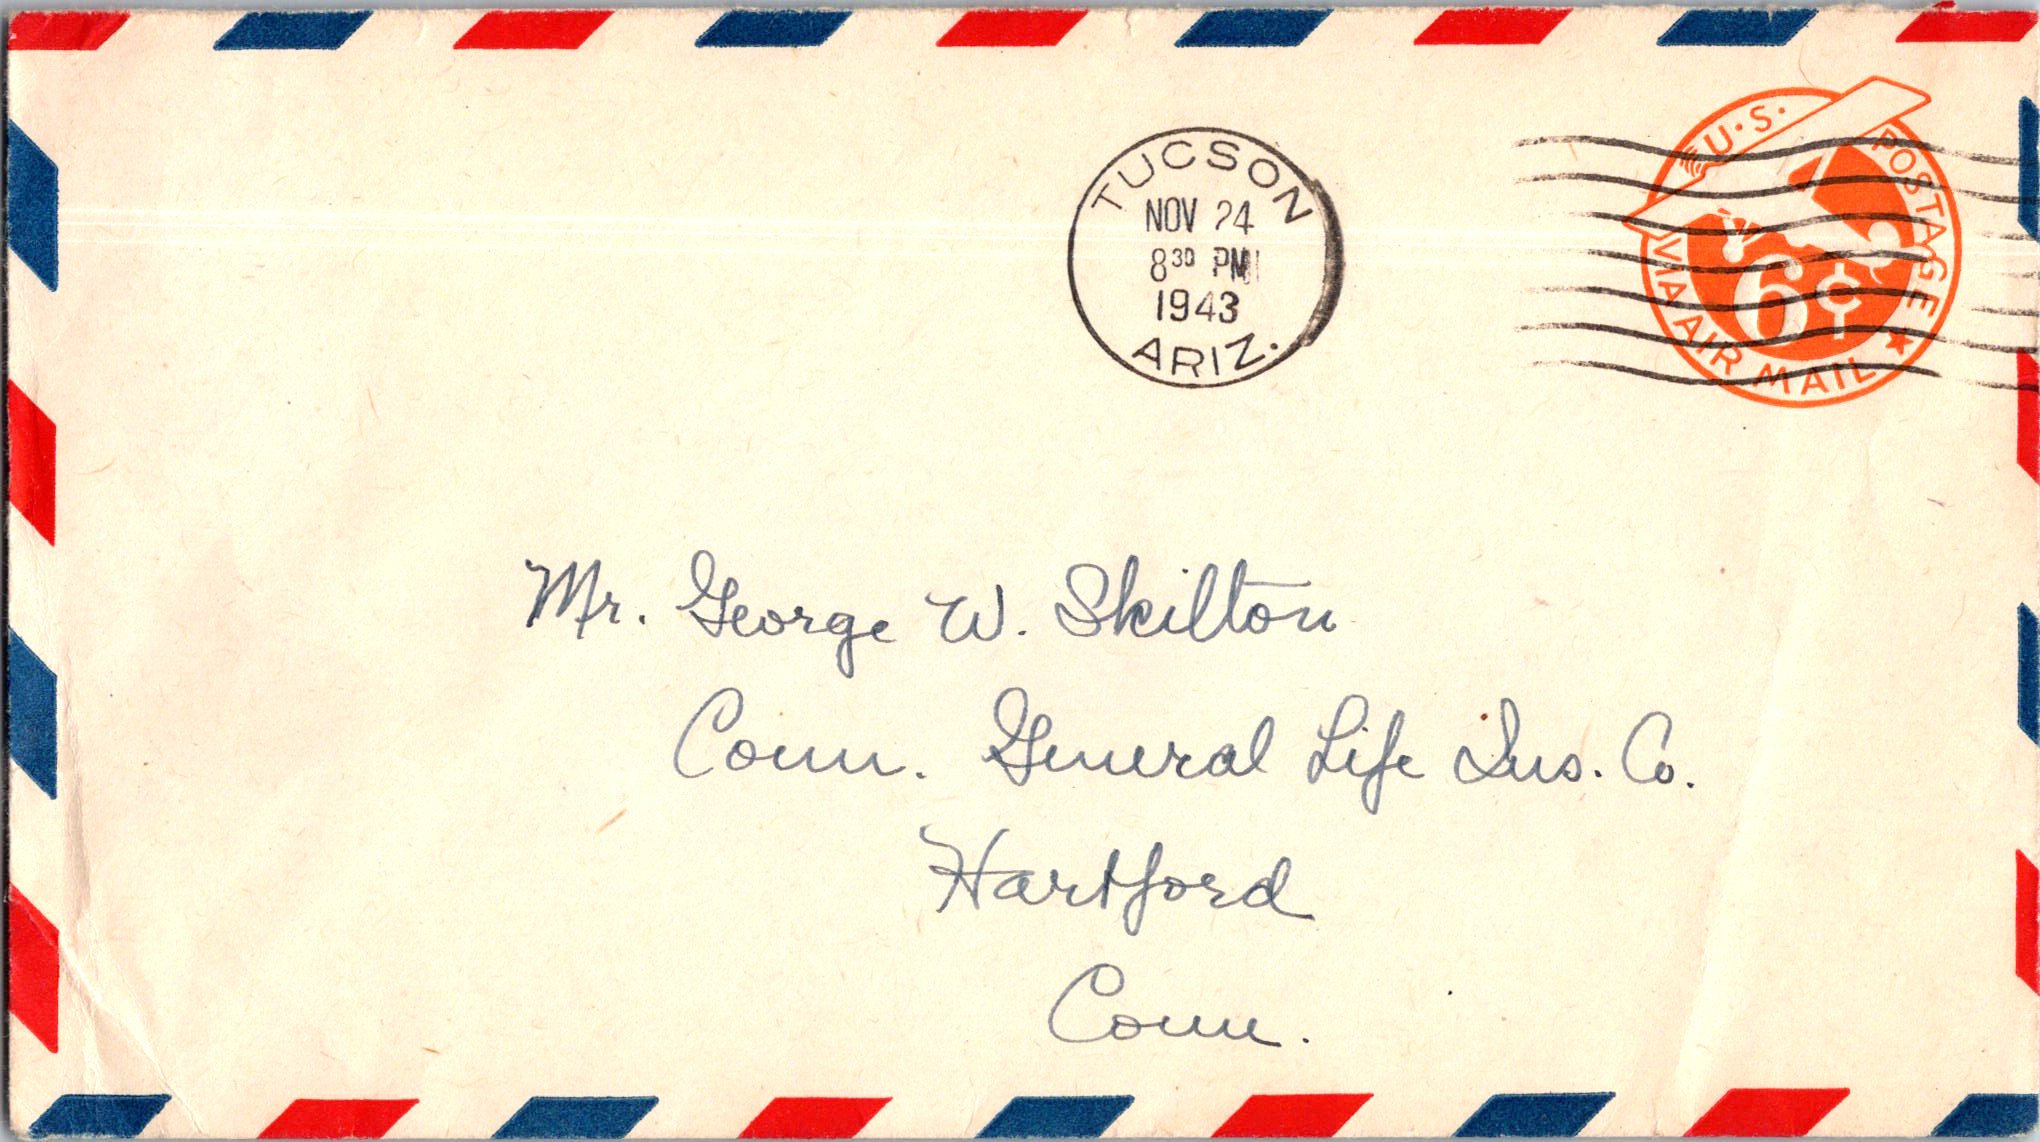 TUCSON
NOV 24
8³⁰ PM
1943
ARIZ.
U.S. POSTAGE
6¢
VIA AIR MAIL
Mr. George W. Skilton
Conn. General Life Ins. Co.
Hartford
Conn.